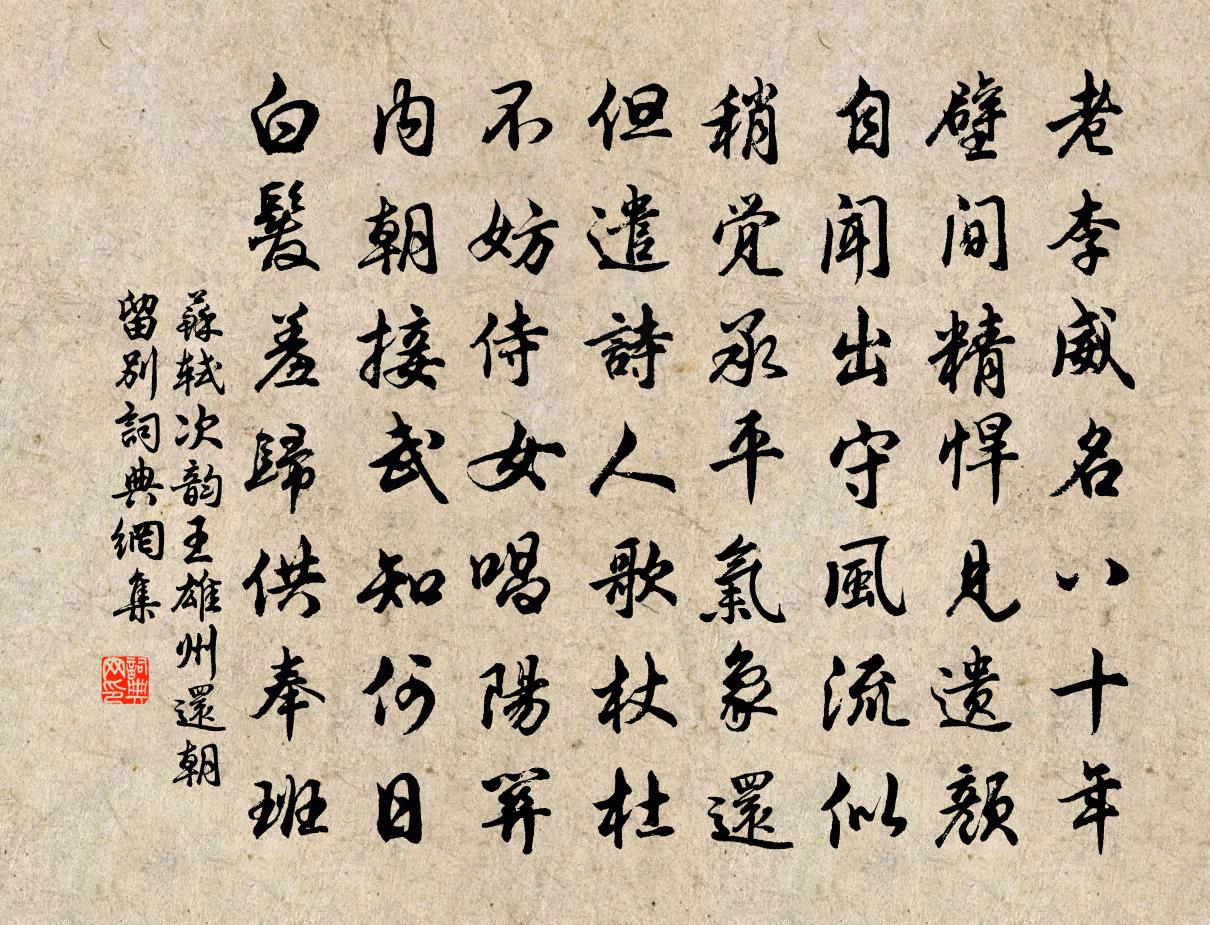 老李威名八十年
壁間精悍見遺顏
自聞出守風流似
稍覺承平氣象還
但遣詩人歌杖杜
不妨侍女唱陽關
内朝接武知何日
白髮羞歸供奉班
蘇軾次韵王雄州還朝
留別詞典網集
詞典
网印